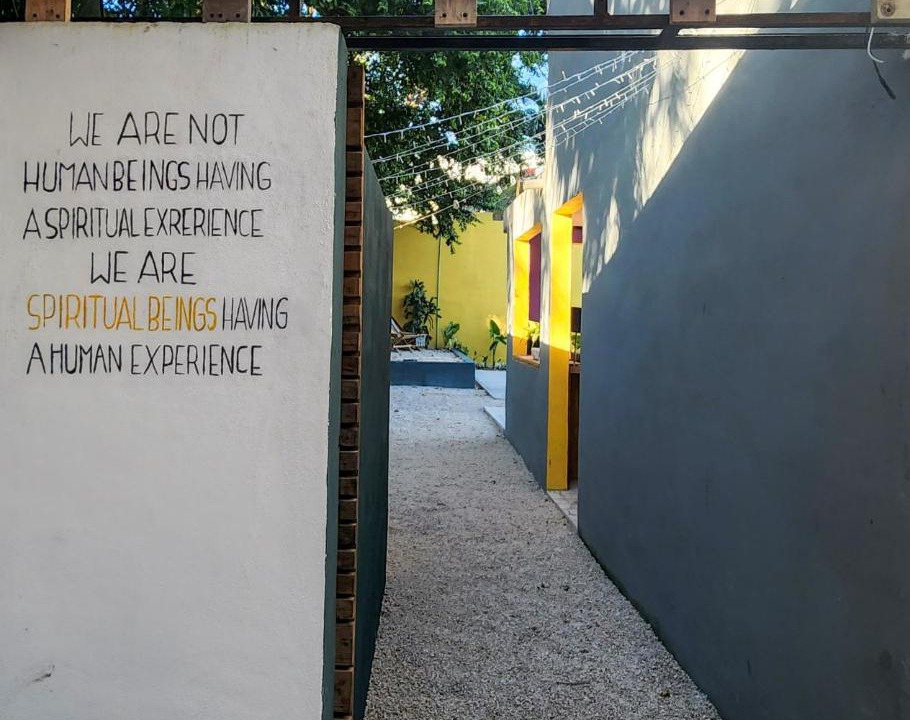 WE ARE NOT
HUMAN BEINGS HAVING
A SPIRITUAL EXRERIENCE
WE ARE
SPIRITUAL BEINGS HAVING
A HUMAN EXPERIENCE